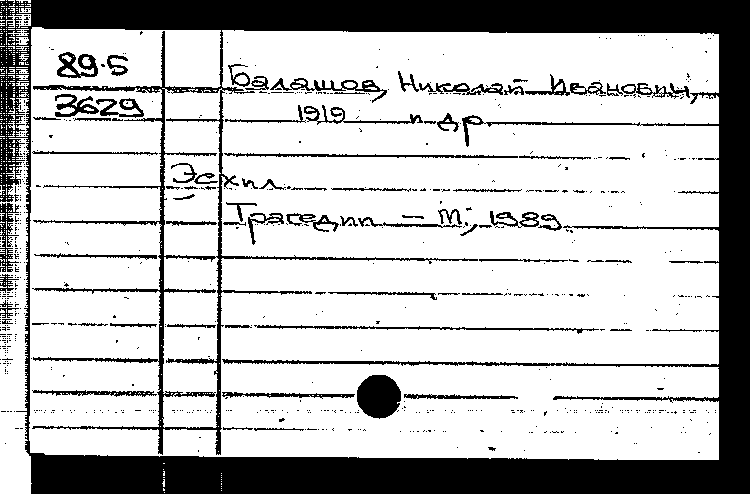 89-5
Балашов, Николай Иванович,
3629
1919 и др.
Эсхил
Трагедии – М., 1989.